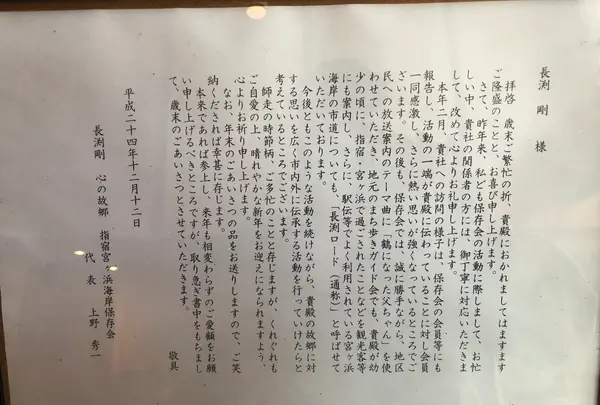 長渕 剛 様
拝啓 歳末ご繁忙の折、貴殿におかれましてはますます
ご隆盛のことと、お喜び申し上げます。
さて、昨年来、私ども保存会の活動に際しまして、お忙
しい中、貴社の関係者の方には、御丁寧に対応いただきま
して、改めて心よりお礼申し上げます。
本年二月、貴社への訪問の様子は、保存会の会員等にも
報告し、活動の一端が貴殿に伝わっていることに対し会員
一同感激し、さらに熱い思いが強くなっているところでご
ざいます。その後も、保存会では、誠に勝手ながら、地区
民への放送案内のテーマ曲に「鶴になった父ちゃん」を使
わせていただき、地元のまち歩きガイド会でも、貴殿が幼
少の頃に、指宿・宮ヶ浜で過ごされたことなどを観光客等
にも案内し、さらに、駅伝等でよく利用されている宮ヶ浜
海岸の市道についても、「長渕ロード(通称)」と呼ばせて
いただいております。
今後ともこのような活動を続けながら、貴殿の故郷に対
する思いを広く市内外に伝承する活動を行っていけたらと
考えているところでございます。
師走の時節柄、ご多忙のことと存じますが、くれぐれも
ご自愛の上、晴れやかな新年をお迎えになられますよう、
心よりお祈り申し上げます。
なお、年末のごあいさつの品をお送りしますので、ご笑
納くだされば幸甚に存じます。
本来であれば参上し、来年も相変わらずのご愛顧をお願
い申し上げるべきところですが、取り急ぎ書中をもちまし
て、歳末のごあいさつとさせていただきます。
敬具
平成二十四年十二月十二日
長渕剛 心の故郷 指宿宮ヶ浜海岸保存会
代 表 上野 秀一